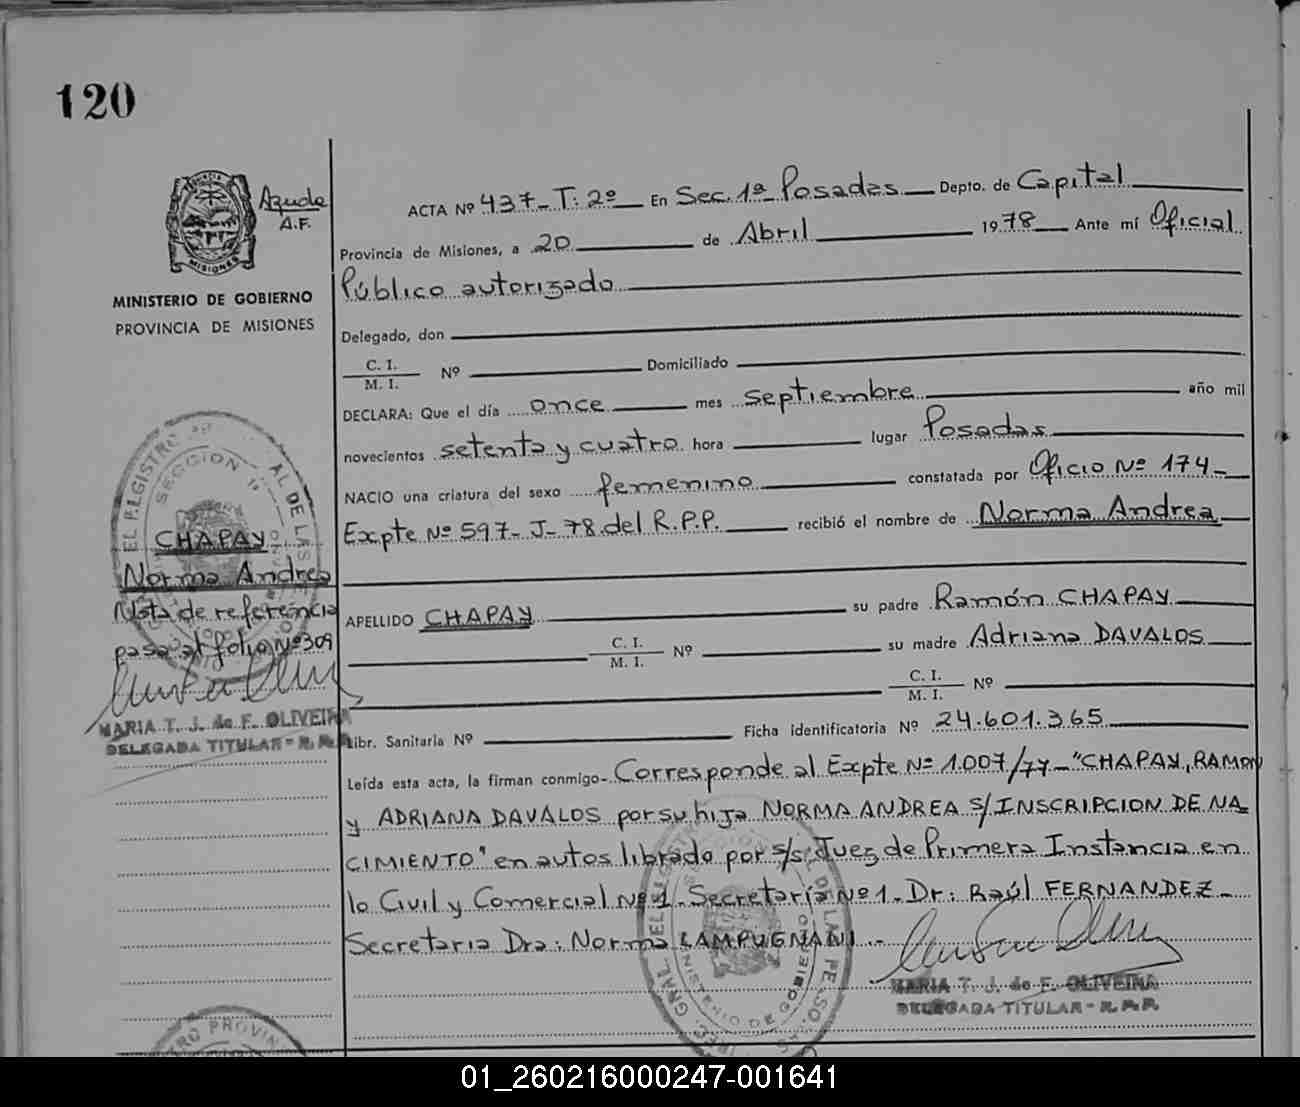 120
Ayude
A.F.
MINISTERIO DE GOBIERNO
PROVINCIA DE MISIONES
ACTA Nº 437-T: 2º En Sec. 1ª Posadas Depto. de Capital
Provincia de Misiones, a 20 de Abril 1978 Ante mí Oficial
Público autorizado
Delegado, don
C. I.
M. I. Nº Domiciliado
DECLARA: Que el día once mes septiembre año mil
novecientos setenta y cuatro hora lugar Posadas
NACIO una criatura del sexo femenino constatada por Oficio Nº 174-
Expte Nº 597-J-78 del R.P.P. recibió el nombre de Norma Andrea
APELLIDO CHAPAY su padre Ramón CHAPAY
C. I.
M. I. Nº su madre Adriana DAVALOS
C. I.
M. I. Nº
Libr. Sanitaria Nº Ficha identificatoria Nº 24.601.365
Leída esta acta, la firman conmigo- Corresponde al Expte Nº 1.007/77-"CHAPAY, RAMON
y ADRIANA DAVALOS por su hija NORMA ANDREA S/INSCRIPCION DE NA-
CIMIENTO" en autos librado por S/S: Juez de Primera Instancia en
lo Civil y Comercial Nº 1. Secretaría Nº 1. Dr: Raúl FERNANDEZ-
Secretaria Dra: Norma LAMPUGNANI.-
MARIA T. J. de F. OLIVEIRA
DELEGADA TITULAR - R. P. P.
CHAPAY
Norma Andrea
Nota de referencia
pasa al folio Nº 309
MARIA T. J. de F. OLIVEIRA
DELEGADA TITULAR - R. P. P.
SECCION 1ª
MINISTERIO DE GOBIERNO
01_260216000247-001641